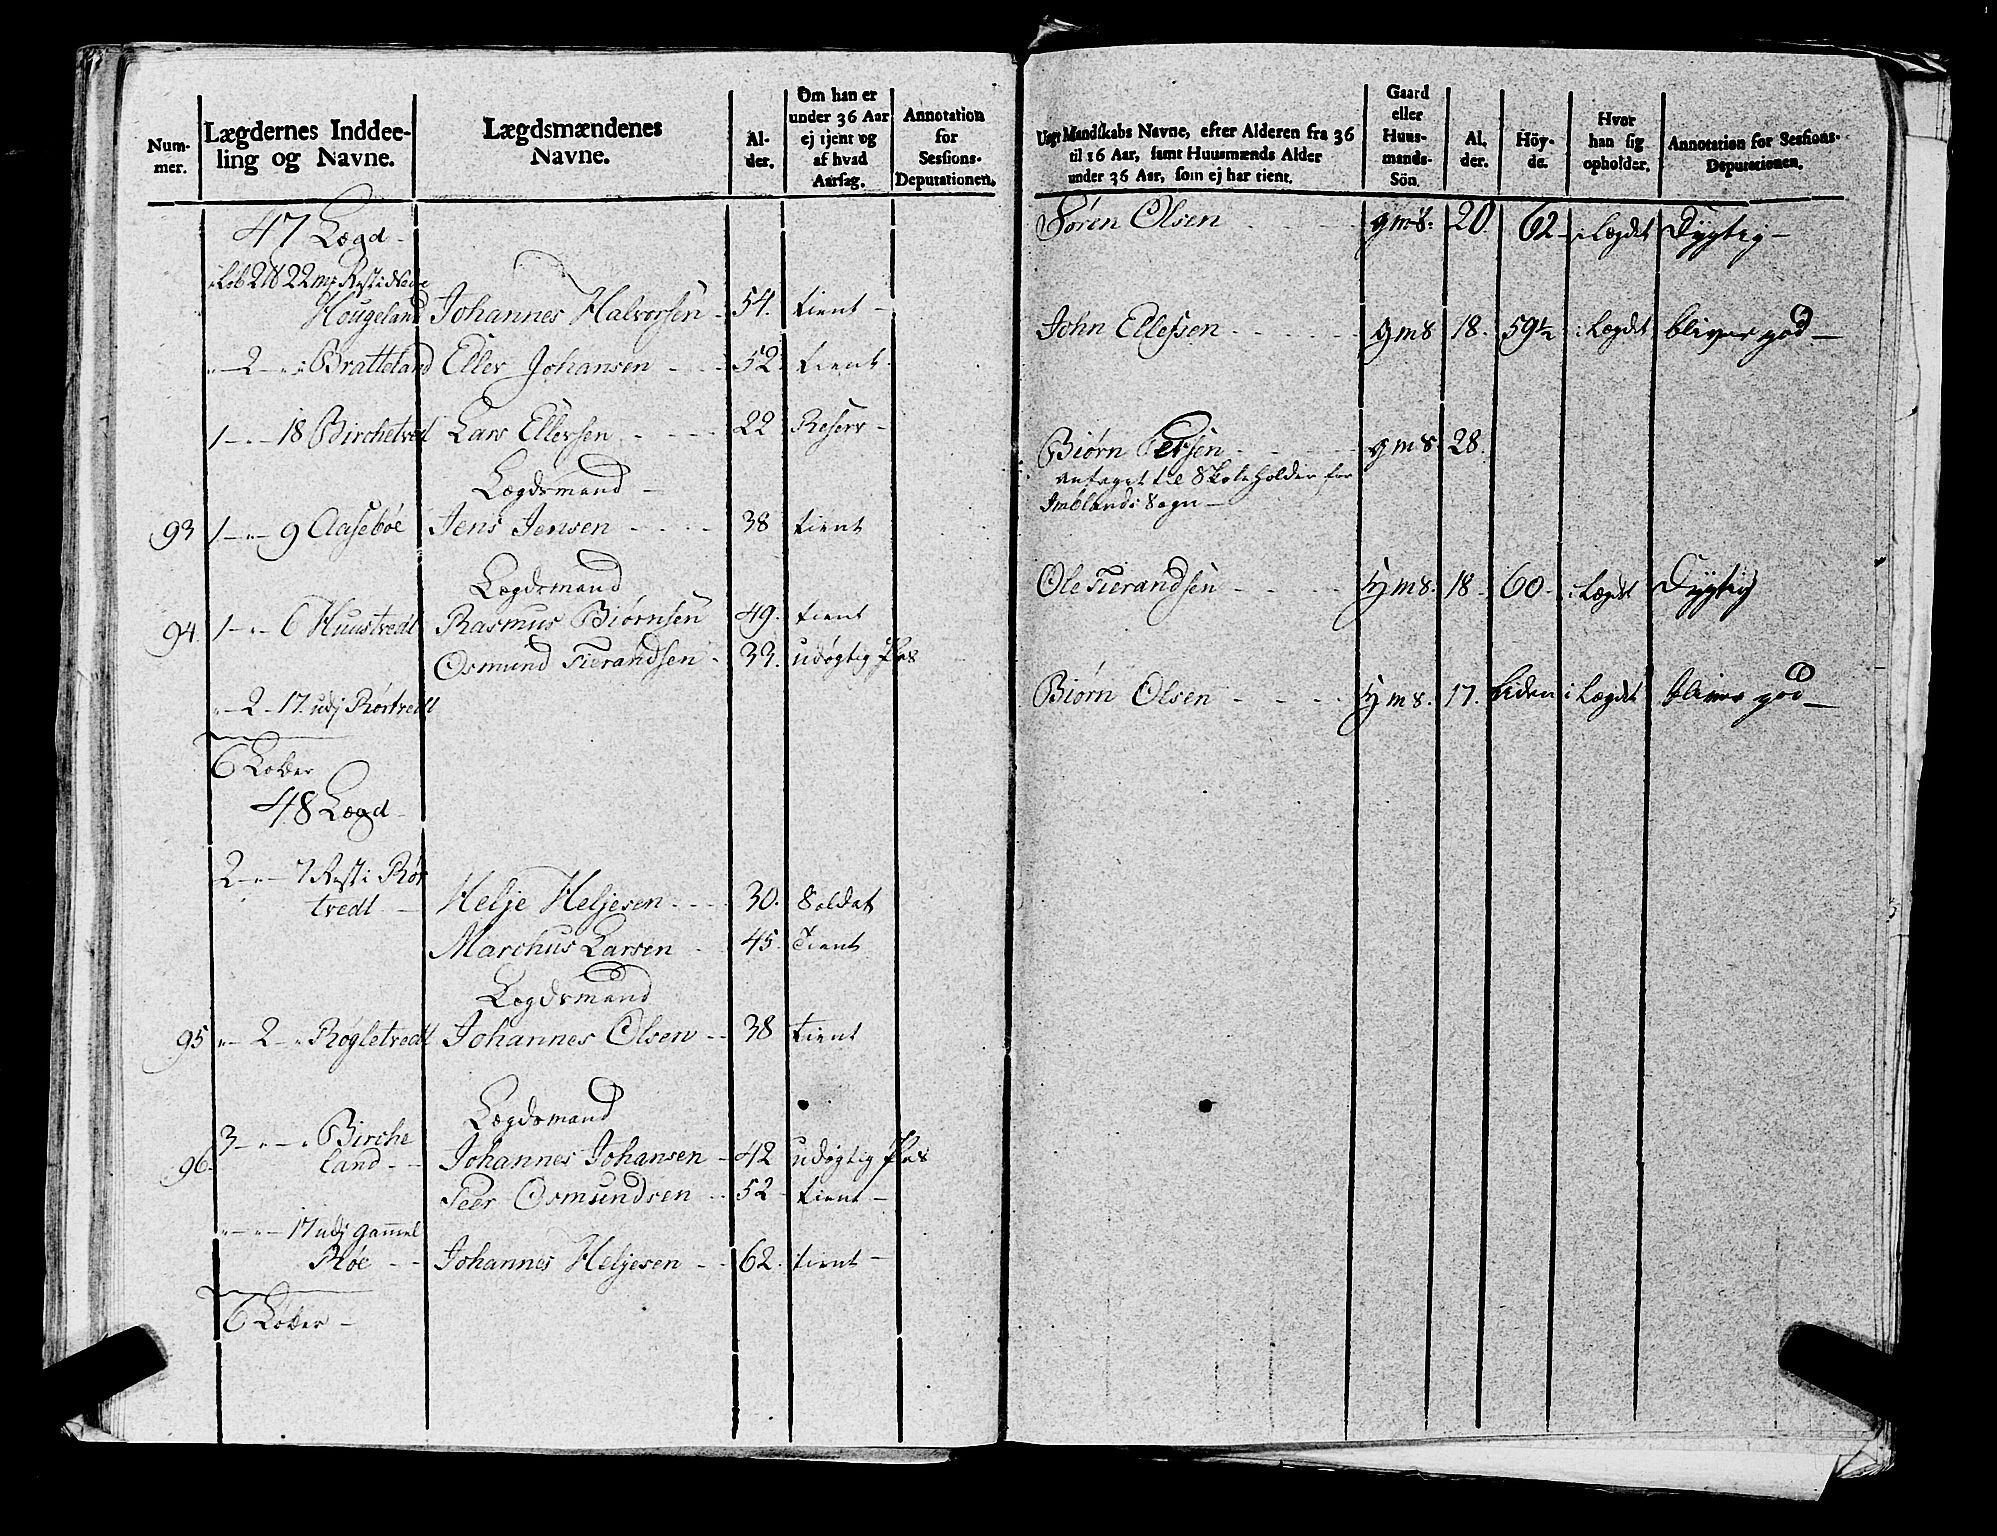 Num-
mer.
Lægdernes Inddee-
ling og Navne.
Lægdsmændenes
Navne.
Al-
der.
Om han er
under 36 Aar
ej tjent og
af hvad
Aarsag.
Annotation
for
Sessions-
Deputationen.
47 Lægd
Hougeland Johannes Halvorsen 54. tient
2 Bratteland Eller Johansen 52 tient
1 18 Birchetvedt Lars Ellersen 22 Reserv
Lægdsmand
93 1 9 Aasebøe Jens Jensen 38 tient
Lægdsmand
94. 1 6 Huustvedt Rasmus Biørnsen 49. tient
Osmund Tierandsen 33. udøgtig Pas
2 17. udj Rørtvedt
6 Løber
48 Lægd
2 7 Rest i Rør
tvedt Helje Heljesen 30. Soldat
Marchus Larsen 45. Tient
Lægdsmand
95 2 Røgletvedt Johannes Olsen 38 tient
Lægdsmand
3 Birche
96. land Johannes Johansen 42 udøgtig Pas
Peer Osmundsen 52 tient
17 udj Gammel
Røe Johannes Heljesen 62. tient
6 Løber
Ungt Mandskabs Navne, efter Alderen fra 36
til 16 Aar, samt Huusmænds Alder
under 36 Aar, som ej har tient.
Gaard
eller
Huus-
mands-
Sön.
Al.
der.
Höy-
de.
Hvor
han sig
opholder.
Annotation for Sessions-
Deputationen.
Søren Olsen gms. 20 62 i Lægdet Dygtig
John Ellefsen gms 18. 59½ i Lægdet bliver god
Biørn Persen gms 28.
antaget til Skoleholder for
Imblands Sogn
Ole Tierandsen gms. 18 60 i Lægdet Dygtig
Biørn Olsen gms. 17. liden i Lægdet bliver god